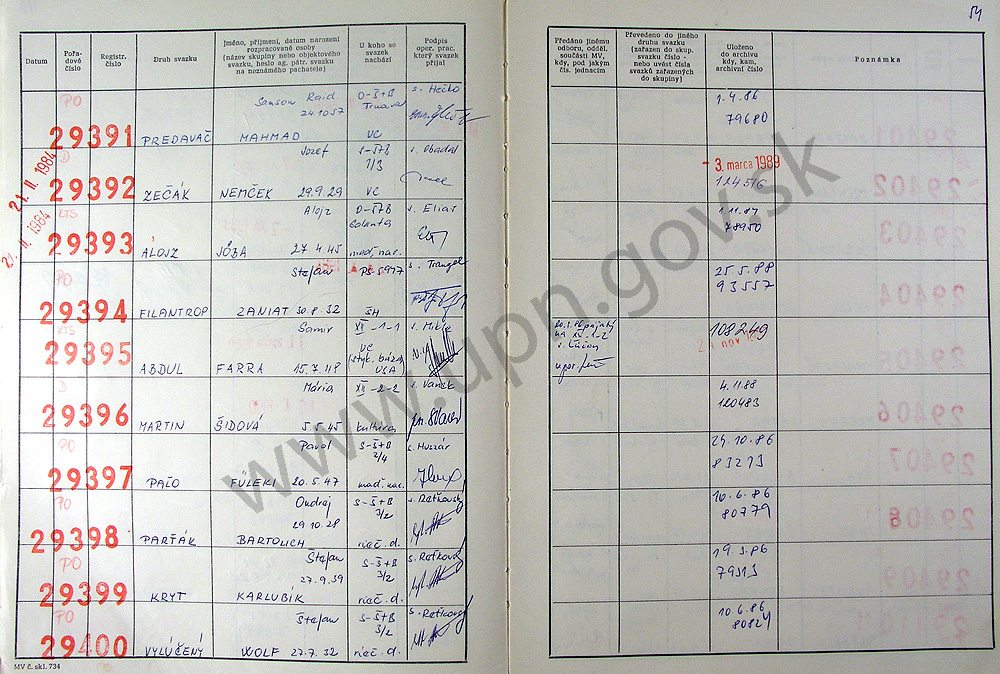 54
Datum
Pořa-
dové
číslo
Registr.
číslo
Druh svazku
Jméno, příjmení, datum narození
rozpracované osoby
(název skupiny nebo objektového
svazku, heslo ag. pátr. svazku
na neznámého pachatele)
U koho se
svazek
nachází
Podpis
oper. prac.
který svazek
přijal
Předáno jinému
odboru, odděl.
součásti MV,
kdy, pod jakým
čís. jednacím
Převedeno do jiného
druhu svazku
(zařazen do skup.
svazku číslo -
nebo uvést čísla
svazků zařazených
do skupiny)
Uloženo
do archivu
kdy, kam,
archivní číslo
Poznámka
PO
Samson Raid
24.10.57
O-ŠtB
Trnava
s. Hečko
29391 PREDAVAČ MAHMAD VC
1.4.86
79680
21. II. 1984
D
Jozef
S-ŠTB
1/3
s. Obadal
29392 ZEČÁK NEMČEK 29.9.29 VC
- 3. marca 1989
124516
21. II. 1984
KTS
Alojz
O-ŠTB
Galanta
s. Elias
29393 ALOJZ JÓBA 27.4.45 maď. nac.
1.11.87
78950
PO
Štefan
PS-5917
s. Trangel
29394 FILANTROP ZANIAT 30.8.32 ŠH
25.5.88
93557
KTS
Samir
XII-1-1
VC
s. Mikle
29395 ABDUL FARRA 15.7.48
108249
D
Mária
XII-2-2
s. Vanek
29396 MARTIN ŠIDOVÁ 5.5.45 kultúra
4.11.88
120483
PO
Pavol
S-ŠtB
2/4
s. Huszár
29397 PAĽO FÜLEKI 20.5.47 maď. nac.
24.10.86
83273
PO
Ondrej
29.10.28
S-ŠtB
3/2
s. Reťkovský
29398 PARŤÁK BARTOVICH rieč. d.
10.6.86
80779
PO
Štefan
27.9.39
S-ŠtB
3/2
29399 KRYT KARLUBÍK rieč. d.
19.3.86
79513
PO
Štefan
S-ŠtB
3/2
29400 VYLÚČENÝ WOLF 27.7.32 rieč. d.
10.6.86
80824
MV č. skl. 734
www.upn.gov.sk